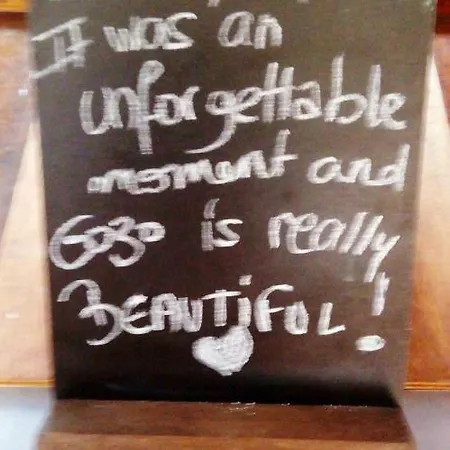 It was an
unforgettable
moment and
Gozo is really
BEAUTIFUL!